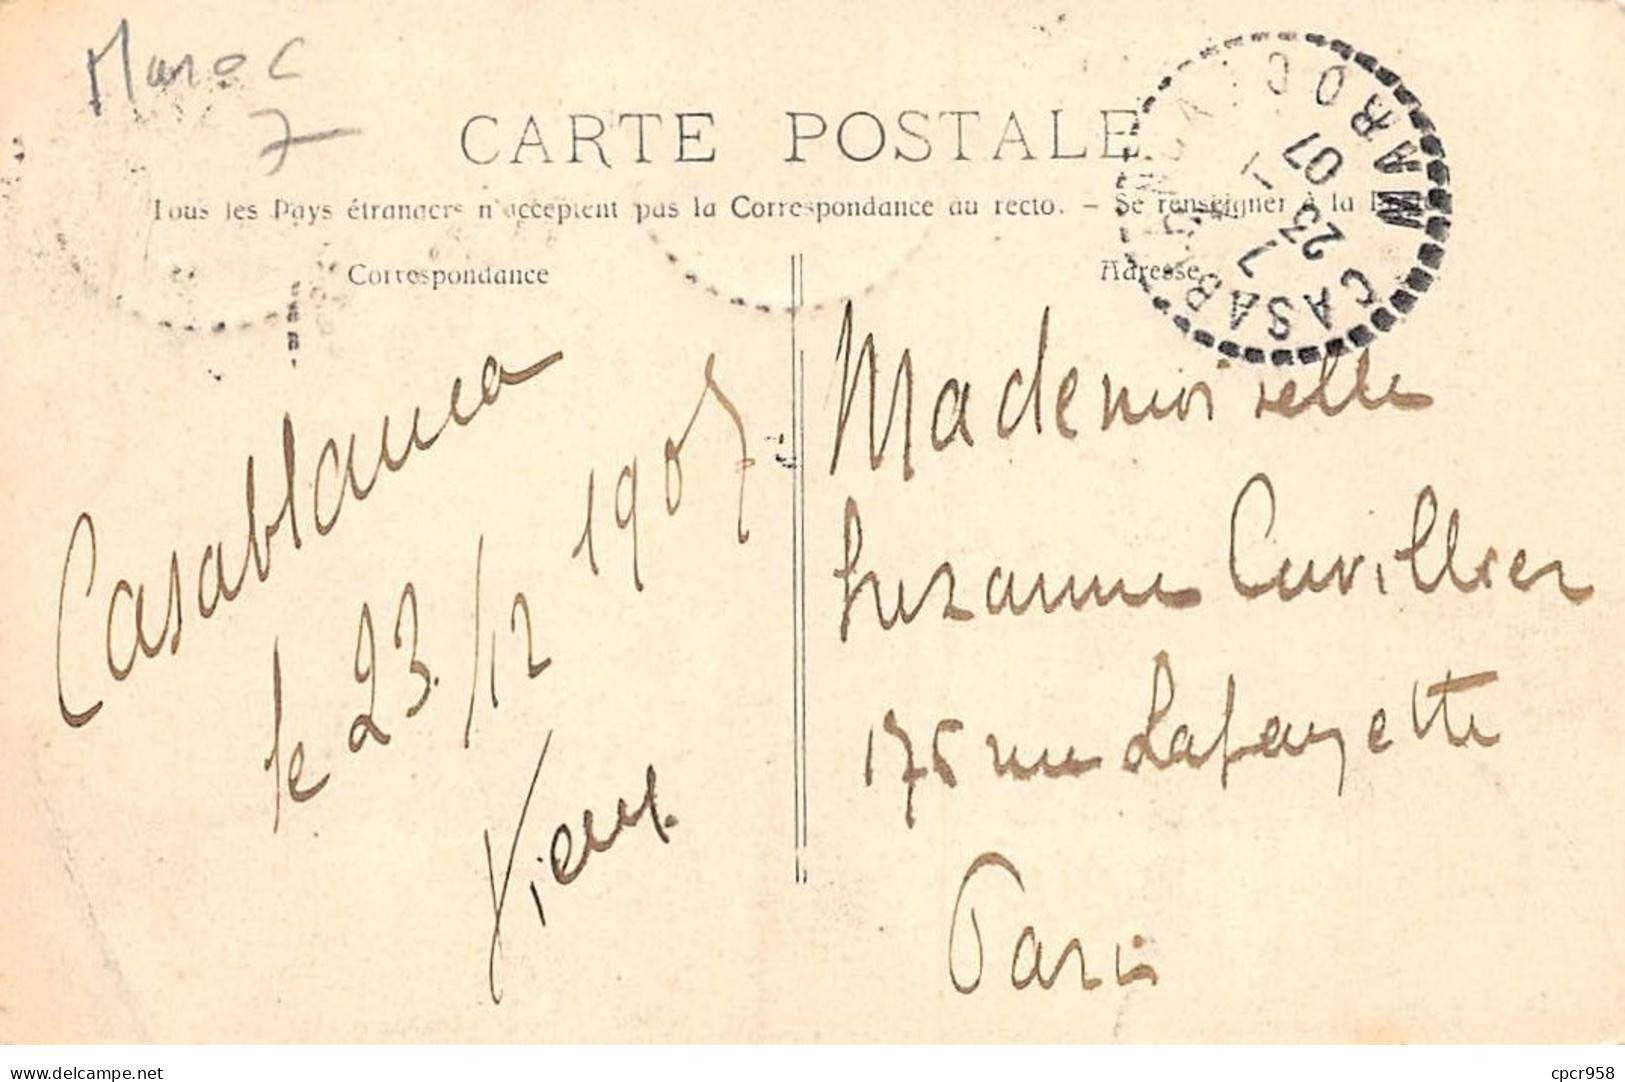 Maroc
7
CARTE POSTALE
Tous les Pays étrangers n'acceptent pas la Correspondance au recto. - Se renseigner à la
Correspondance
Adresse
CASABLANCA MAROC
23 07
Casablanca
le 23/12 1907
Mademoiselle
Suzanne Cuvillier
175 rue Lafayette
Paris
www.delcampe.net
cpcr958